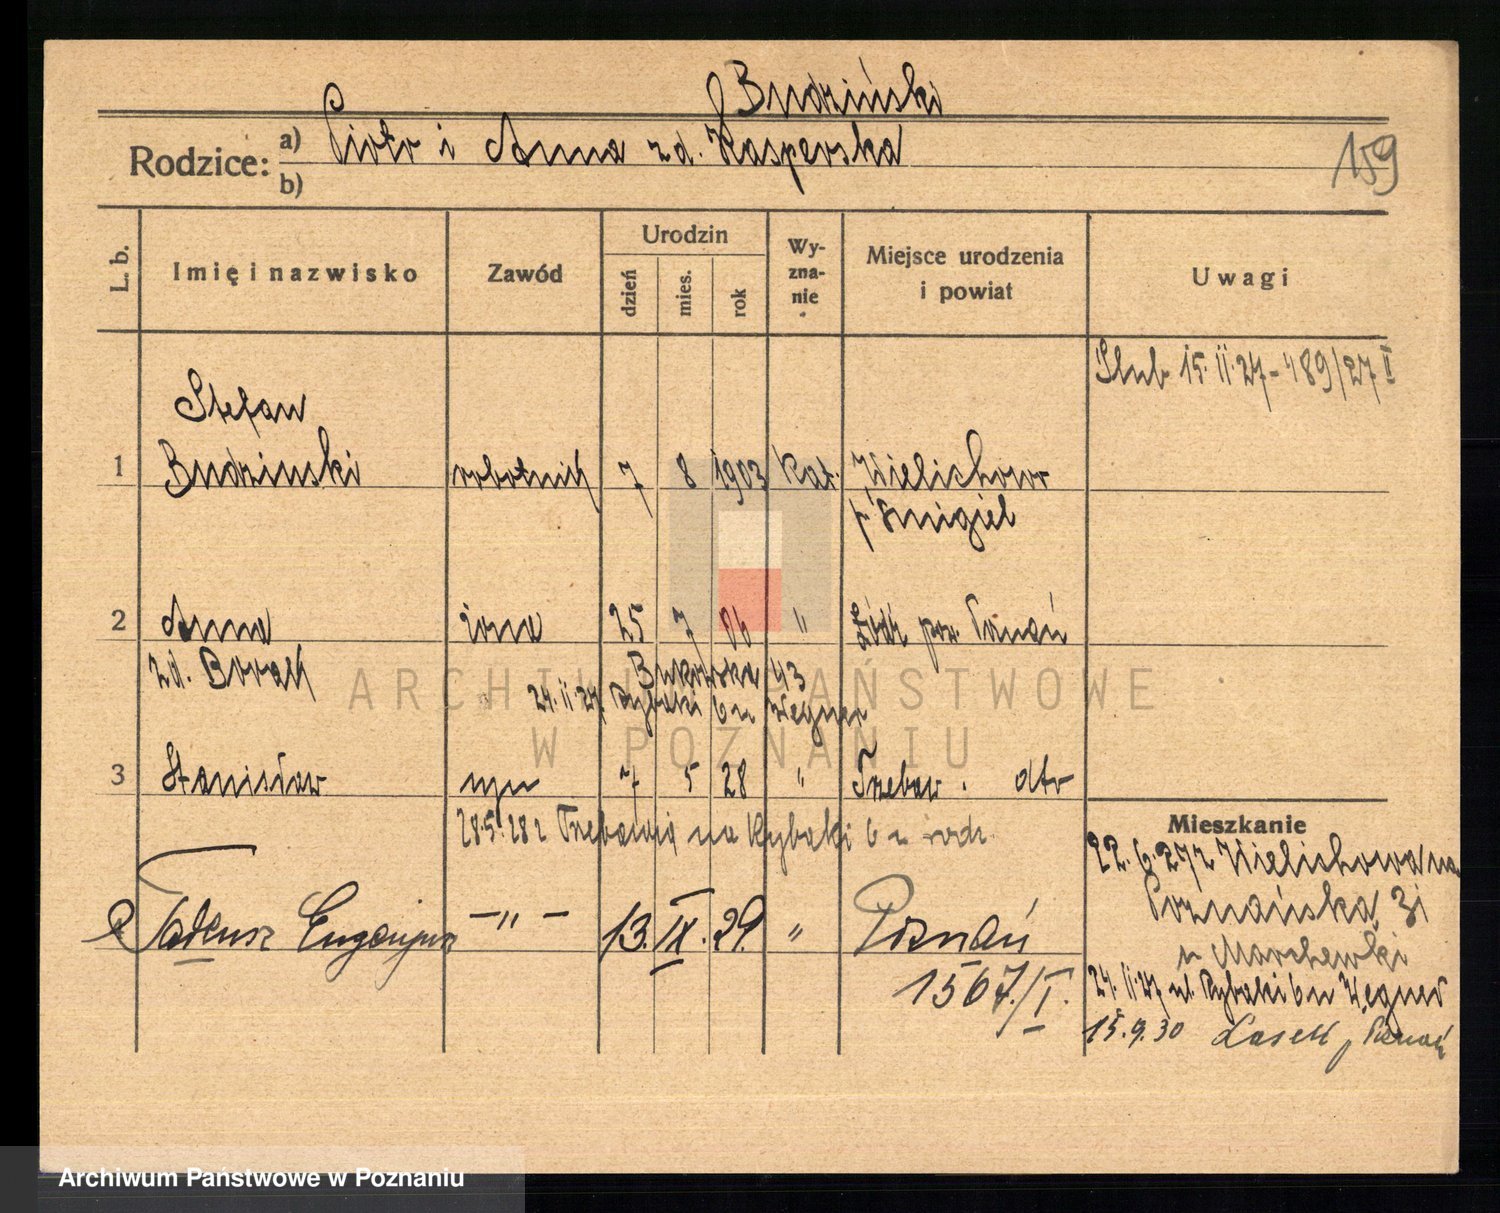 Budziński
Rodzice: a) Piotr i Anna zd. Kasperska
b)
159
L. b.
Imię i nazwisko
Zawód
Urodzin
dzień
mies.
rok
Wy-
zna-
nie
Miejsce urodzenia
i powiat
Uwagi
Ślub 15.II.27 - 489/27 II
Stefan
1 Budzinski robotnik 7 8 1903 Kat. Wielichowo
p. Smigiel
2 Anna żona 25 7 06 " Łódź pow. Poznań
zd. Borak
Bukowska 43
24.II.27 Rybaki 6 u Wegner
3 Stanisław syn 7 5 28 " Trzebaw . dto
28.5.28 z Trzebawia na Rybaki 6 u rodz.
Tadeusz Eugenjusz -"- 13. IX. 29. " Poznań
1567./I.
Mieszkanie
22.6.27 z Wielichowa na
Poznańska 31
u Marchewki
24.II.27 ul. Rybaki 6 u Wegner
15.9.30 Lasek p. Poznań
ARCHIWUM PAŃSTWOWE
W POZNANIU
Archiwum Państwowe w Poznaniu